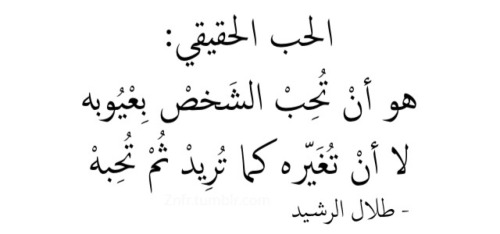 الحب الحقيقي:
هو أنْ تُحِبْ الشَخصْ بِعْيُوبه
لا أنْ تُغَيّره كما تُرِيدْ ثُمْ تُحِبهْ
- طلال الرشيد